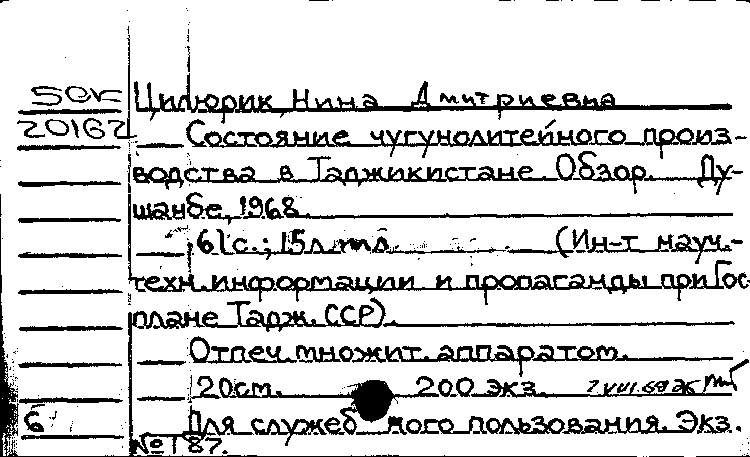 Цилюрик, Нина Дмитриевна
20162 Состояние чугунолитейного произ-
водства в Таджикистане. Обзор. Ду-
шанбе, 1968.
61с.; 15л.илл. (Ин-т науч.-
техн.информации и пропаганды при Гос-
плане Тадж. ССР).
Отпеч.множит.аппаратом.
20см. 200 экз.
6 Для служебного пользования. Экз.
№ 187.